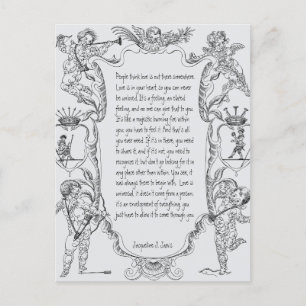 People think love is out there somewhere.
Love is in your heart, so you can never
be unloved. It's a feeling, an elated
feeling, and no one can give that to you.
It's like a majestic burning fire within
you; you have to feel it. And that's all
you ever need. If it's in there, you need
to share it, and if it's not, you need to
recognize it, but don't go looking for it in
any place other than within. You see, it
had always there to begin with. Love is
universal; it doesn't come from a person;
it's an development of everything; you
just have to allow it to come through you.
Jacqueline J. Janis